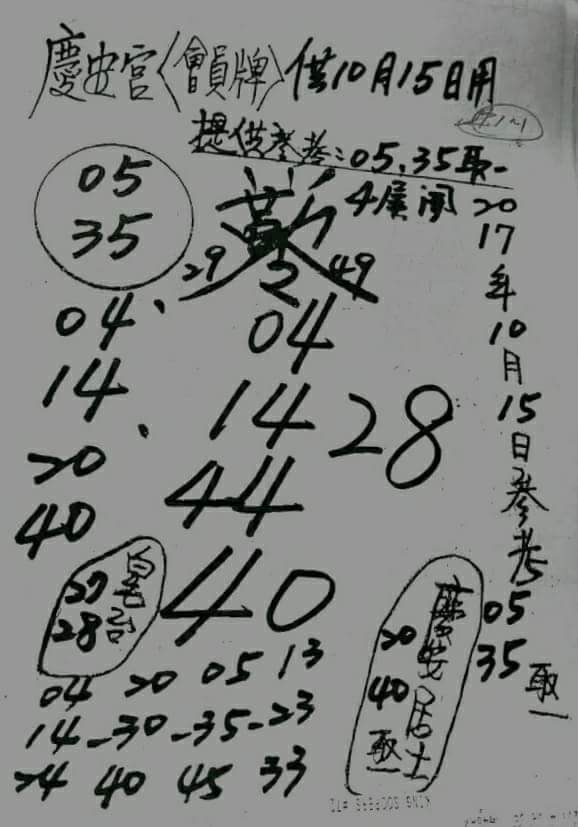 慶安宮〈會員牌〉供10月15日用
提供參考:05、35取一
4廣闻
05
35
29 49
04、
14、
20
40
04
14
44
40
28
2017年10月15日參考
05
35
取一
27
28
慶安居士
20
40
取一
04 20 05 13
14-30-35-23
24 40 45 33